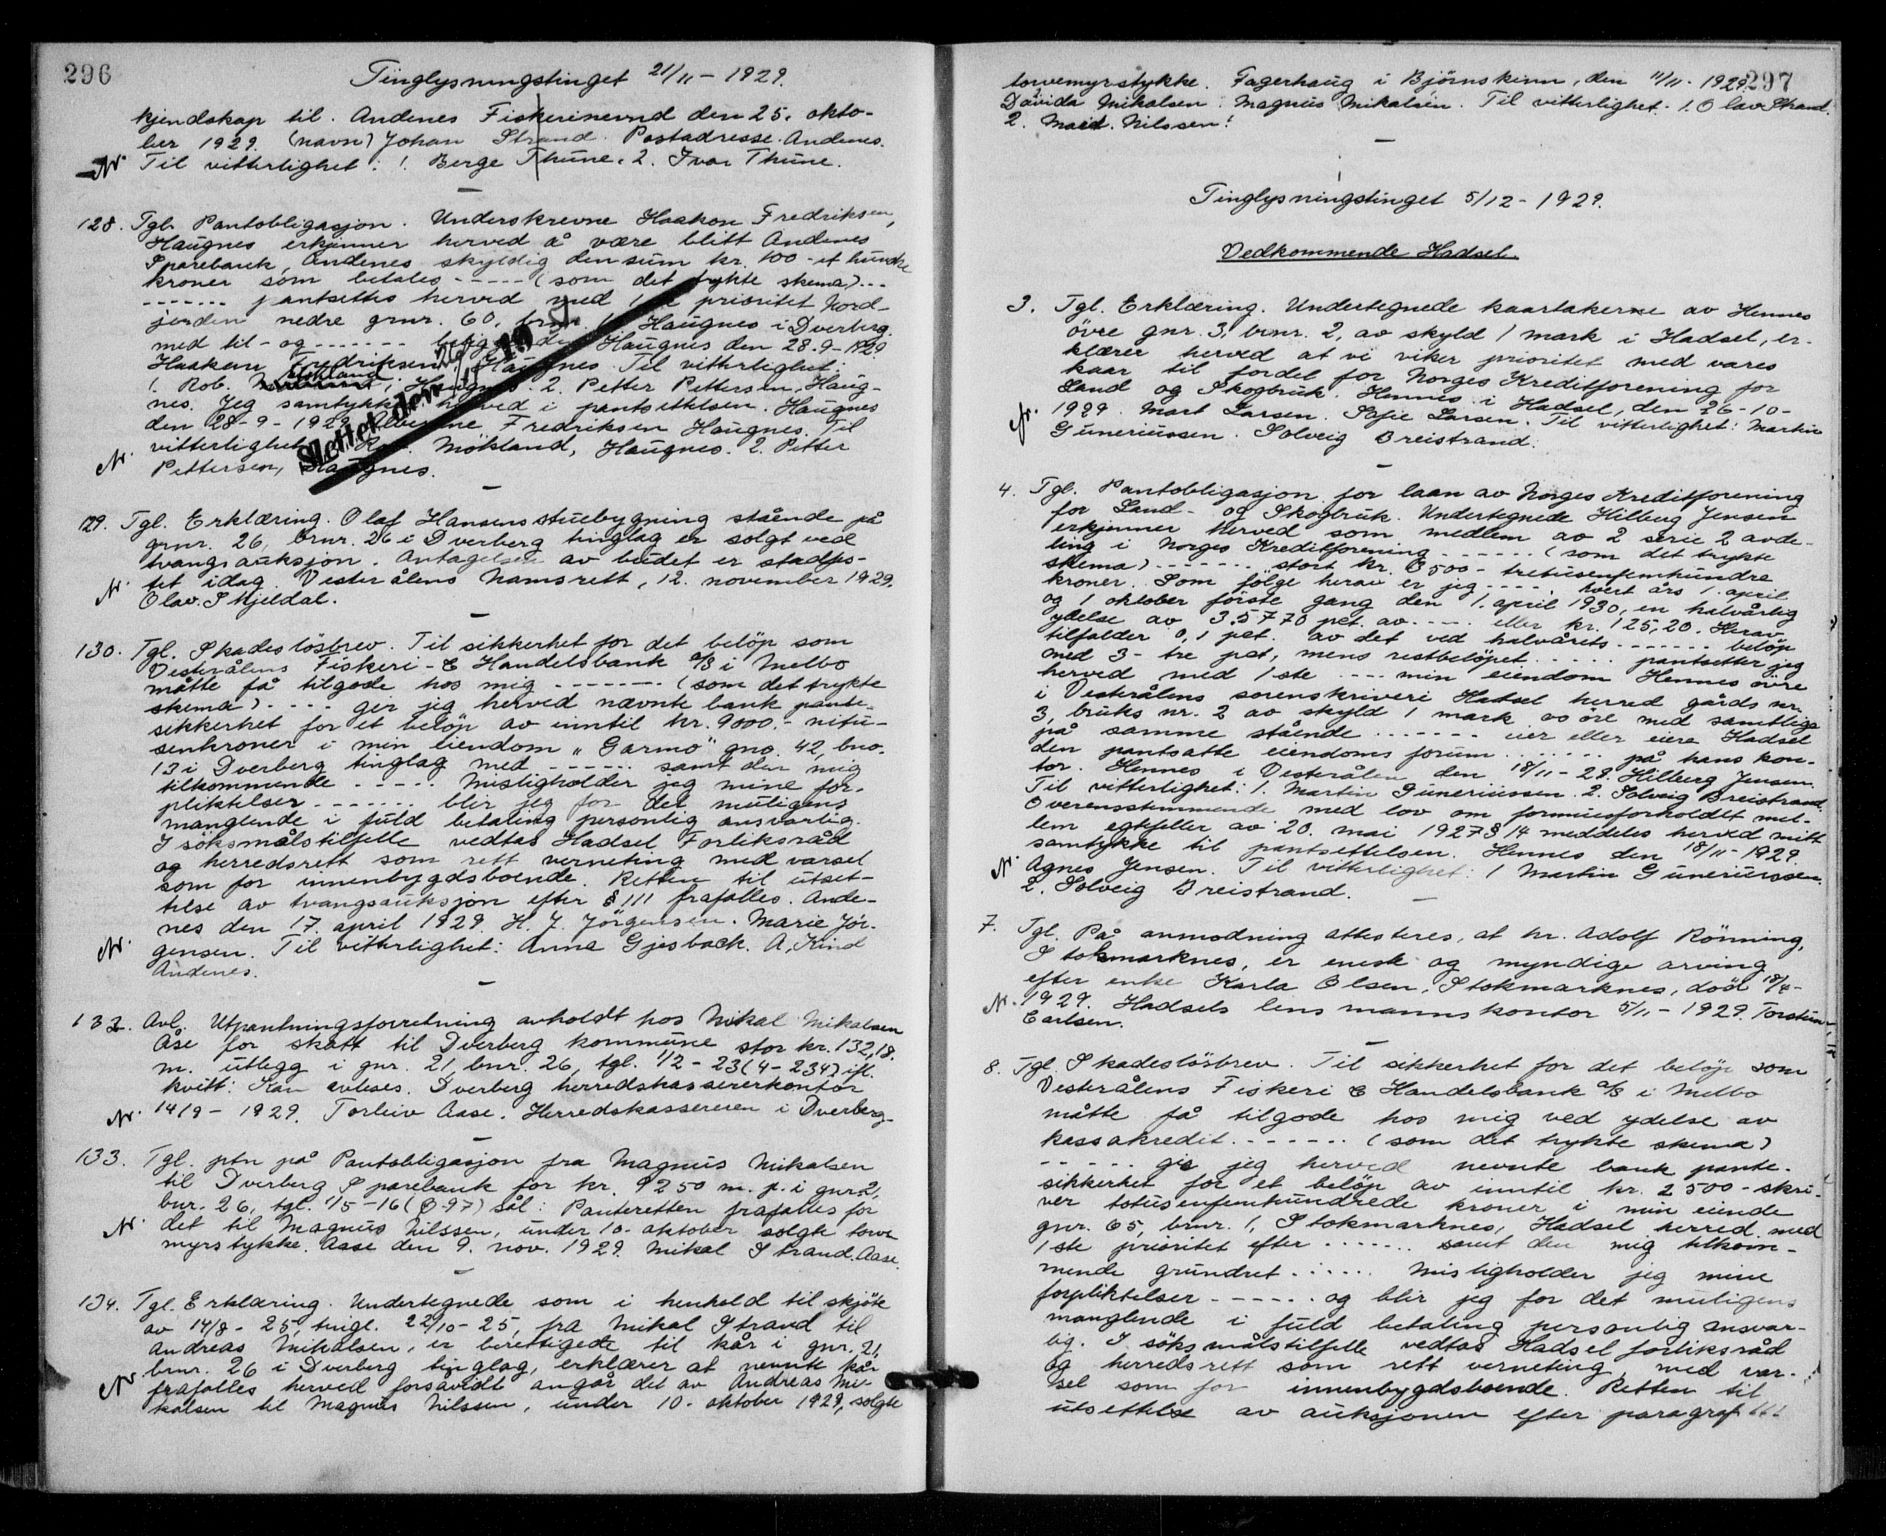 296
Tinglysningstinget 21/11 - 1929.
kjendskap til. Andenes Fiskerinevnd den 25. okto-
ber 1929. (navn) Johan Strand. Postadresse. Andenes.
Nr. Til vitterlighet: 1. Berge Thune. 2. Ivar Thune.
128. Tgl. Pantobligasjon. Underskrevne Haakon Fredriksen,
Haugnes erkjenner herved å være blitt Andenes
Sparebank, Andenes skyldig den sum kr. 100 - et hundre
kroner som betales ----- (som det trykte skema)...
------- pantsettes herved med 1ste prioritet Nord-
jorden nedre grnr. 60, brnr. 1, Haugnes i Dverberg
med til- og ------- Haugnes den 28-9-1929
Haakon Fredriksen Haugnes. Til vitterlighet:
1. Rob. Mökland, Haugnes 2. Petter Pettersen, Haug-
nes. Jeg samtykker herved i pantsettelsen. Haugnes
den 28-9-1929. Fredriksen Haugnes. Til
vitterlighet: Rob. Mökland, Haugnes. 2. Pitter
Nr. Pettersen, Haugnes.
Slettet den 19
129. Tgl. Erklæring. Olaf Hansens stuebygning stående på
grnr. 26, brnr. 26 i Dverberg tinglag er solgt ved
tvangsauksjon. Antagelsen av budet er stadfes-
tet idag. Vesterålens Namsrett, 12. november 1929.
Nr. Olav. S Mjeldal.
130. Tgl. Skadeslösbrev. Til sikkerhet for det belöp som
Vesterålens Fiskeri- & Handelsbank a/s i Melbo
måtte få tilgode hos mig ------- (som det trykte
skema) .... ger jeg herved nævnte bank pante-
sikkerhet for et belöp av inntil kr. 9000.- nitu-
senkroner i min eiendom "Garmo" gno. 42, bno.
13 i Dverberg tinglag med ------ samt den mig
tilkommende ----- Misligholder jeg mine for-
pliktelser ------- blir jeg for det muligens
manglende i fuld betaling personlig ansvarlig.
I söksmålstilfelle vedtas Hadsel Forliksråd
og herredsrett som rett verneting med varsel
som for innenbygdsboende. Retten til utset-
telse av tvangsauksjon efter § 111 frafalles. Ande-
nes den 17. april 1929. H. J. Jörgensen. Marie Jör-
Nr. gensen. Til vitterlighet: Anna Gjesback. A. Kind
Andenes.
132. Avl. Utpantningsforretning avholdt hos Mikal Mikalsen
Åse for skatt til Dverberg kommune stor kr. 132,18.
m. utlegg i gnr. 21, bnr. 26, tgl. 1/2 - 23 (4-234) ifl.
kvitt: Kan avleses. Dverberg herredskassererkontor
Nr. 14/9 - 1929. Torleiv Aase. Herredskassereren i Dverberg.
133. Tgl. ptn på Pantobligasjon fra Magnus Mikalsen
til Dverberg Sparebank for kr. 9250 m. p. i gnr. 21,
bnr. 26, tgl. 1/5-16 ( -97) sål: Panteretten frafalles for
Nr. det til Magnus Nilssen, under 10. oktober solgte torve
myrstykke. Aase den 9. nov. 1929. Mikal Strand. Aase.
134. Tgl. Erklæring. Undertegnede som i henhold til skjöte
av 14/8 - 25, tingl. 22/10 - 25, fra Mikal Strand til
Andreas Mikalsen, er berettigede til kår i gnr. 21,
brnr. 26 i Dverberg tinglag, erklærer at nevnte kår
Nr frafalles herved forsåvidt angår det av Andreas Mi-
kalsen til Magnus Nilssen, under 10. oktober 1929, solgte
297
torvemyrstykke. Fagerhaug i Björnskinn, den 11/11 - 1929.
Davida Mikalsen. Magnus Mikalsen. Til vitterlighet: 1. Olav Strand.
2. Nilssen!
Tinglysningstinget 5/12 - 1929.
Vedkommende Hadsel.
3. Tgl. Erklæring. Undertegnede kaartakerne av Hennes
övre gnr. 3, brnr. 2, av skyld 1 mark i Hadsel, er-
klærer herved at vi viker prioritet med vores
kaar til fordel for Norges Kreditforening for
Land og Skogbruk. Hennes i Hadsel, den 26-10-
Nr. 1929. Mart Larsen. Sofie Larsen. Til vitterlighet: Martin
Guneriussen. Solveig Breistrand.
4. Tgl. Pantobligasjon for laan av Norges Kreditforening
for Land- og Skogbruk. Undertegnede Hilberg Jensen
erkjenner herved som medlem av 2 serie 2 avde-
ling i Norges Kreditforening ------ (som det trykte
skema) ------- stort kr. 3500 - tretusenfemhundre
kroner. Som fölge herav er jeg ---- hvert års 1. april
og 1 oktober förste gang den 1. april 1930, en halvårlig
ydelse av 3.57770 pct. av ---- eller kr. 125,20. Herav
tilfalder 0,1 pct. av det ved halvårets ------ belöp
med 3- tre pct, mens restbelöpet ..... pantsetter jeg
herved med 1ste .... min eiendom Hennes övre
i Vesterålens sorenskriveri Hadsel herred gårds nr.
3, bruks nr. 2 av skyld 1 mark 00 öre med samtlige
på samme stående ....... eier eller eiere Hadsel
den pantsatte eiendoms forum ..... på hans kon-
tor. Hennes i Vesterålen den 18/11 - 29. Hilberg Jensen.
Til vitterlighet: 1. Martin Guneriussen. 2. Solveig Breistrand.
Overensstemmende med lov om formuesforholdet mel-
lem egtefeller av 20. mai 1927 § 14 meddeles herved mitt
samtykke til pantsettelsen. Hennes den 18/11 - 1929.
Nr. Agnes Jensen. Til vitterlighet: 1 Martin Guneriussen.
2. Solveig Breistrand.
7. Tgl. På anmodning attesteres, at hr. Adolf Rönning,
Stokmarknes, er eneste og myndige arving
efter enke Karla Olsen, Stokmarknes, död 18/4-
Nr. 1929. Hadsels lensmannskontor 5/11 - 1929. Torstein
Carlsen.
8. Tgl Skadeslösbrev. Til sikkerhet for det belöp som
Vesterålens Fiskeri & Handelsbank a/s i Melbo
måtte få tilgode hos mig ved ydelse av
kassakredit. ------- (som det trykte skema)
------ gir jeg herved nevnte bank pante-
sikkerhet for et belöp av inntil kr. 2500 - skri-
ver totusenfemhundrede kroner i min eiende
gnr. 65, brnr. 1, Stokmarknes, Hadsel herred med
1ste prioritet efter ....... samt den mig tilkom-
mende grundret ..... Misligholder jeg mine
forpliktelser ------ og blir jeg for det muligens
manglende i fuld betaling personlig ansvar-
lig. I söksmålstilfelle vedtas Hadsel forliksråd
og herredsrett som rett verneting, med var-
sel som for innenbygdsboende. Retten til
utsettelse av auksjonen efter paragraf 111